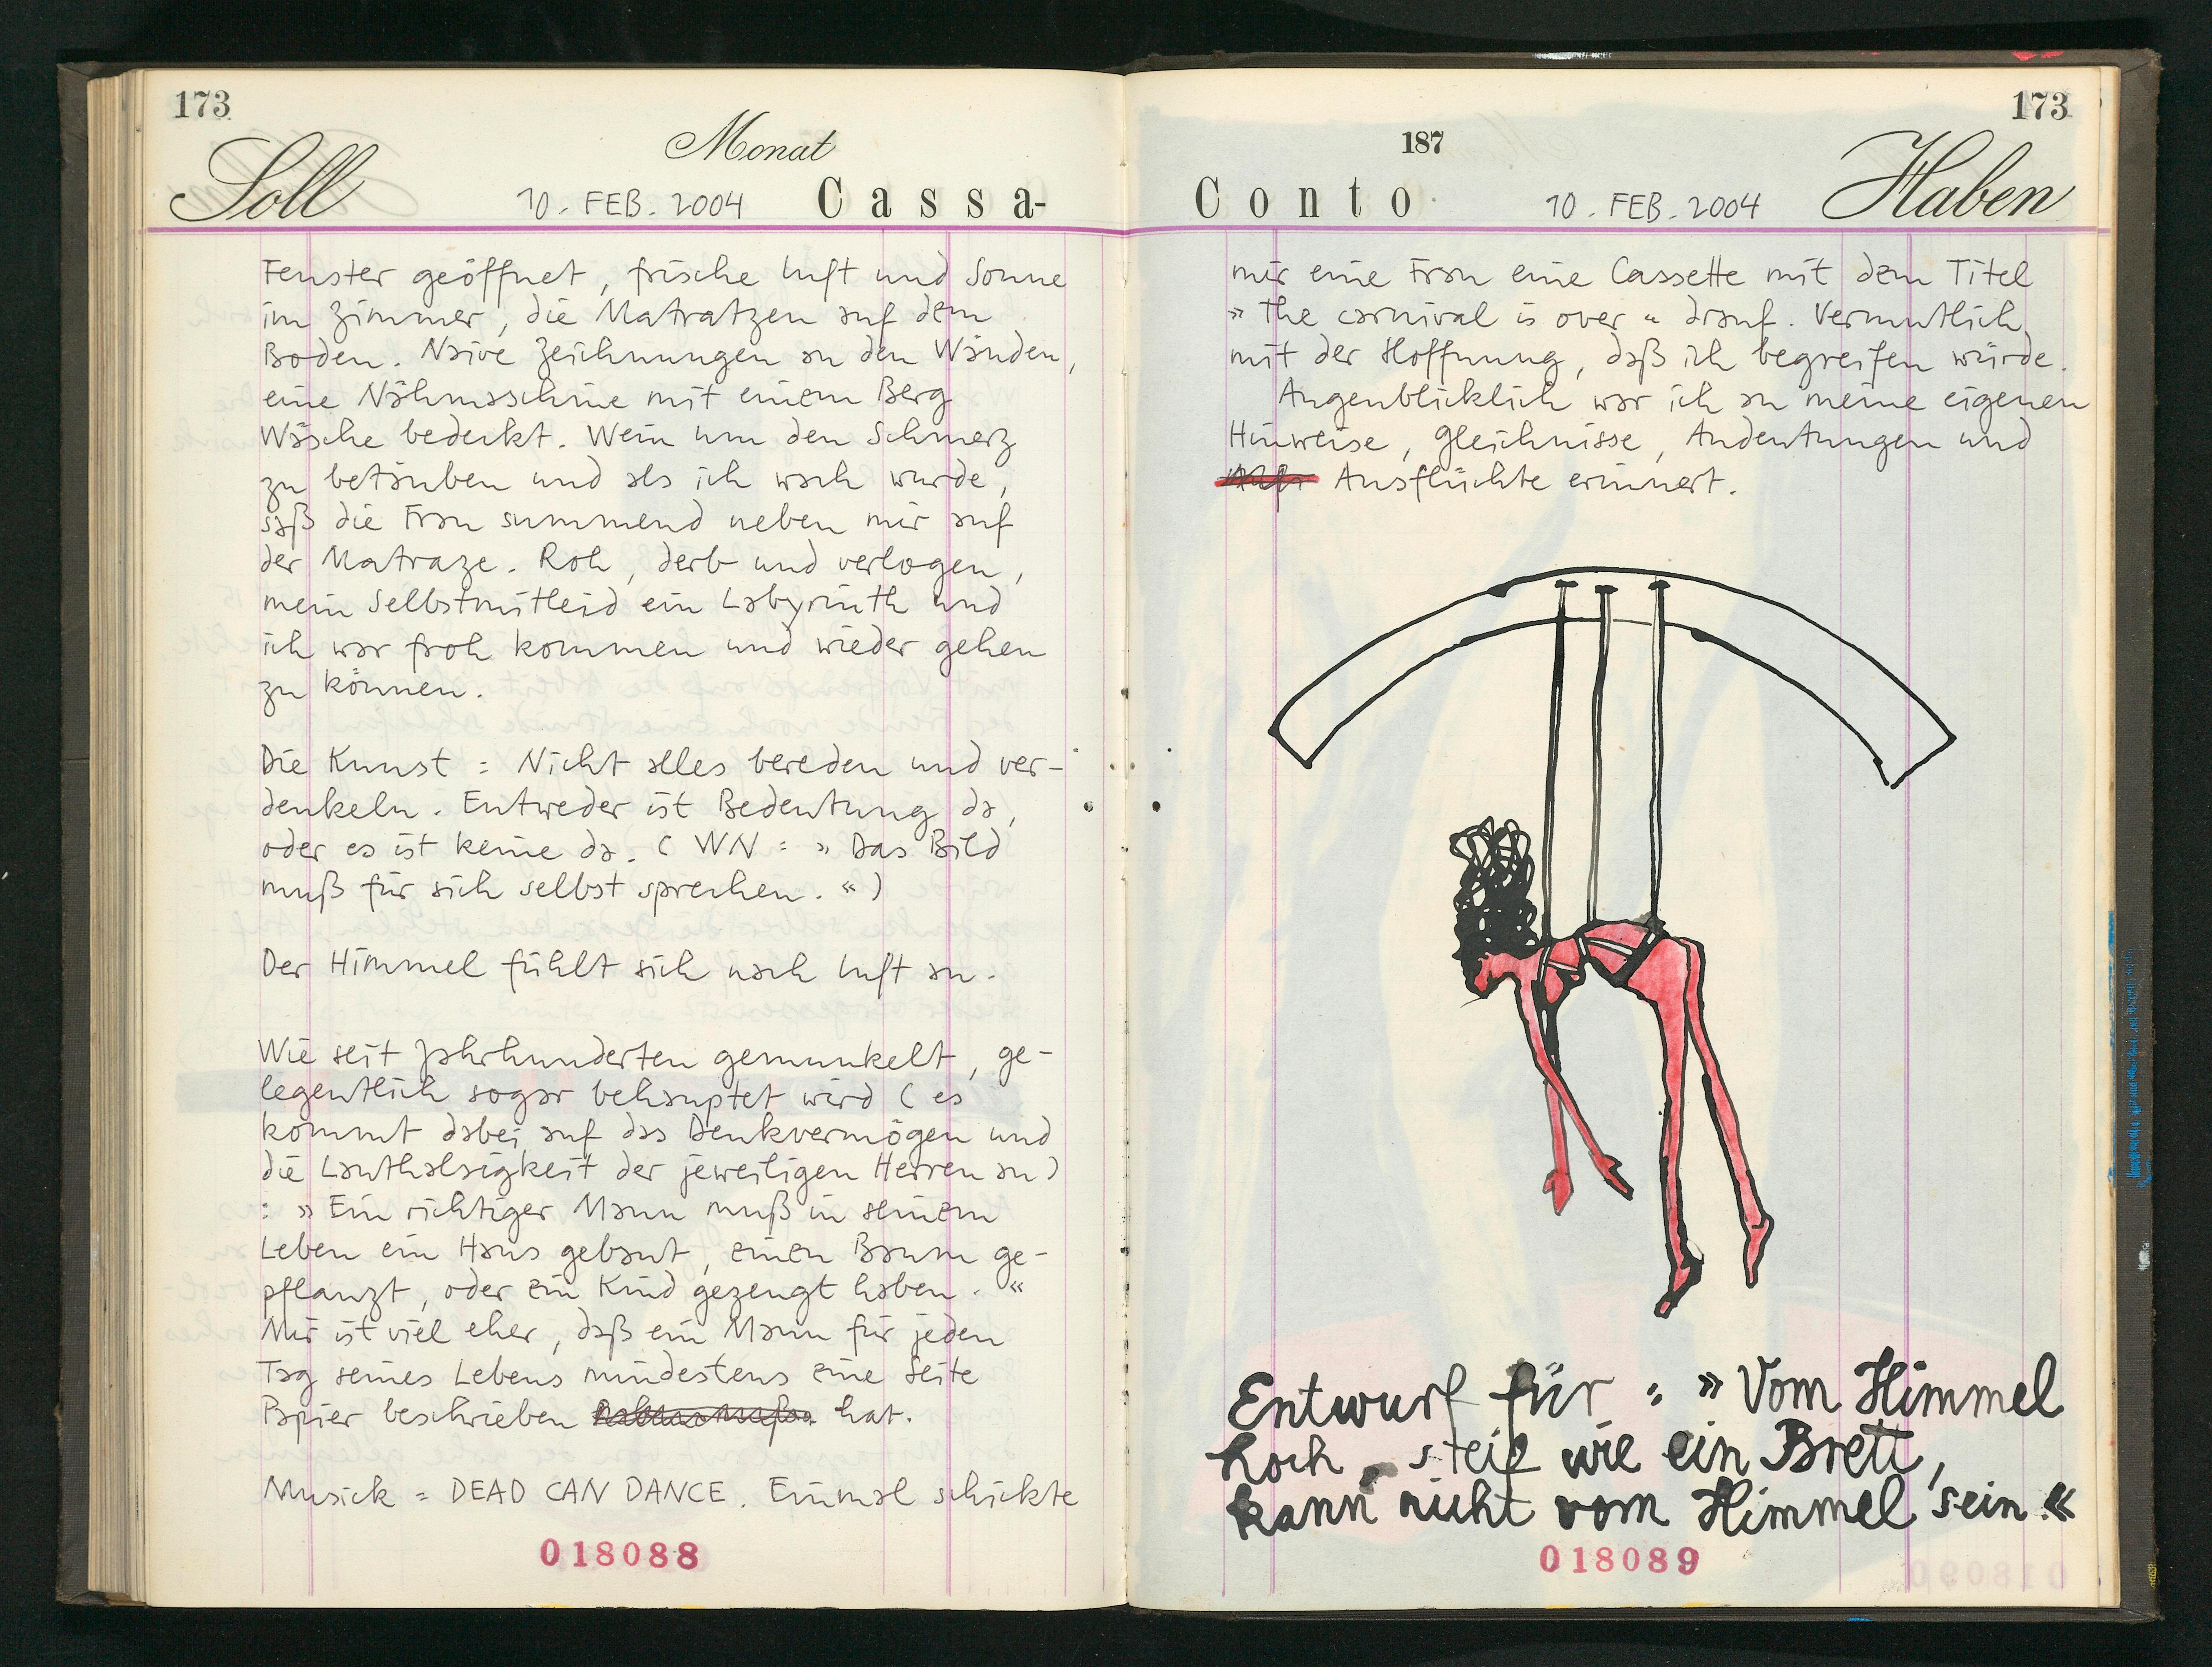 173
Soll
Monat
10. FEB. 2004
Cassa-
Fenster geöffnet, frische Luft und Sonne
im Zimmer, die Matratzen auf dem
Boden. Naive Zeichnungen an den Wänden,
eine Nähmaschine mit einem Berg
Wäsche bedeckt. Wein um den Schmerz
zu betäuben und als ich wach wurde,
saß die Frau summend neben mir auf
der Matraze. Roh, derb und verlogen,
mein Selbstmitleid ein Labyrinth und
ich war froh kommen und wieder gehen
zu können.
Die Kunst : Nicht alles bereden und ver-
denkeln. Entweder ist Bedeutung da,
oder es ist keine da. ( WN : » Das Bild
muß für sich selbst sprechen. « )
Der Himmel fühlt sich nach Luft an.
Wie seit Jahrhunderten gemunkelt, ge-
legentlich sogar behauptet wird ( es
kommt dabei auf das Denkvermögen und
die Lauthalsigkeit der jeweiligen Herren an )
: » Ein richtiger Mann muß in seinem
Leben ein Haus gebaut, einen Baum ge-
pflanzt, oder ein Kind gezeugt haben. «
Mir ist viel eher, daß ein Mann für jeden
Tag seines Lebens mindestens eine Seite
Papier beschrieben hat.
Musick : DEAD CAN DANCE. Einmal schickte
018088
173
187
Conto
10. FEB. 2004
Haben
mir eine Frau eine Cassette mit dem Titel
» the carnival is over « drauf. Vermutlich
mit der Hoffnung, daß ich begreifen würde.
Augenblicklich war ich an meine eigenen
Hinweise, Gleichnisse, Andeutungen und
Ausflüchte erinnert.
Entwurf für : » Vom Himmel
hoch, steif wie ein Brett,
kann nicht vom Himmel sein. «
018089